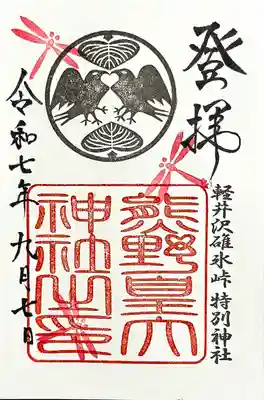 登拝
軽井沢碓氷峠 特別神社
熊野皇大
神社之印
令和七年 九月七日